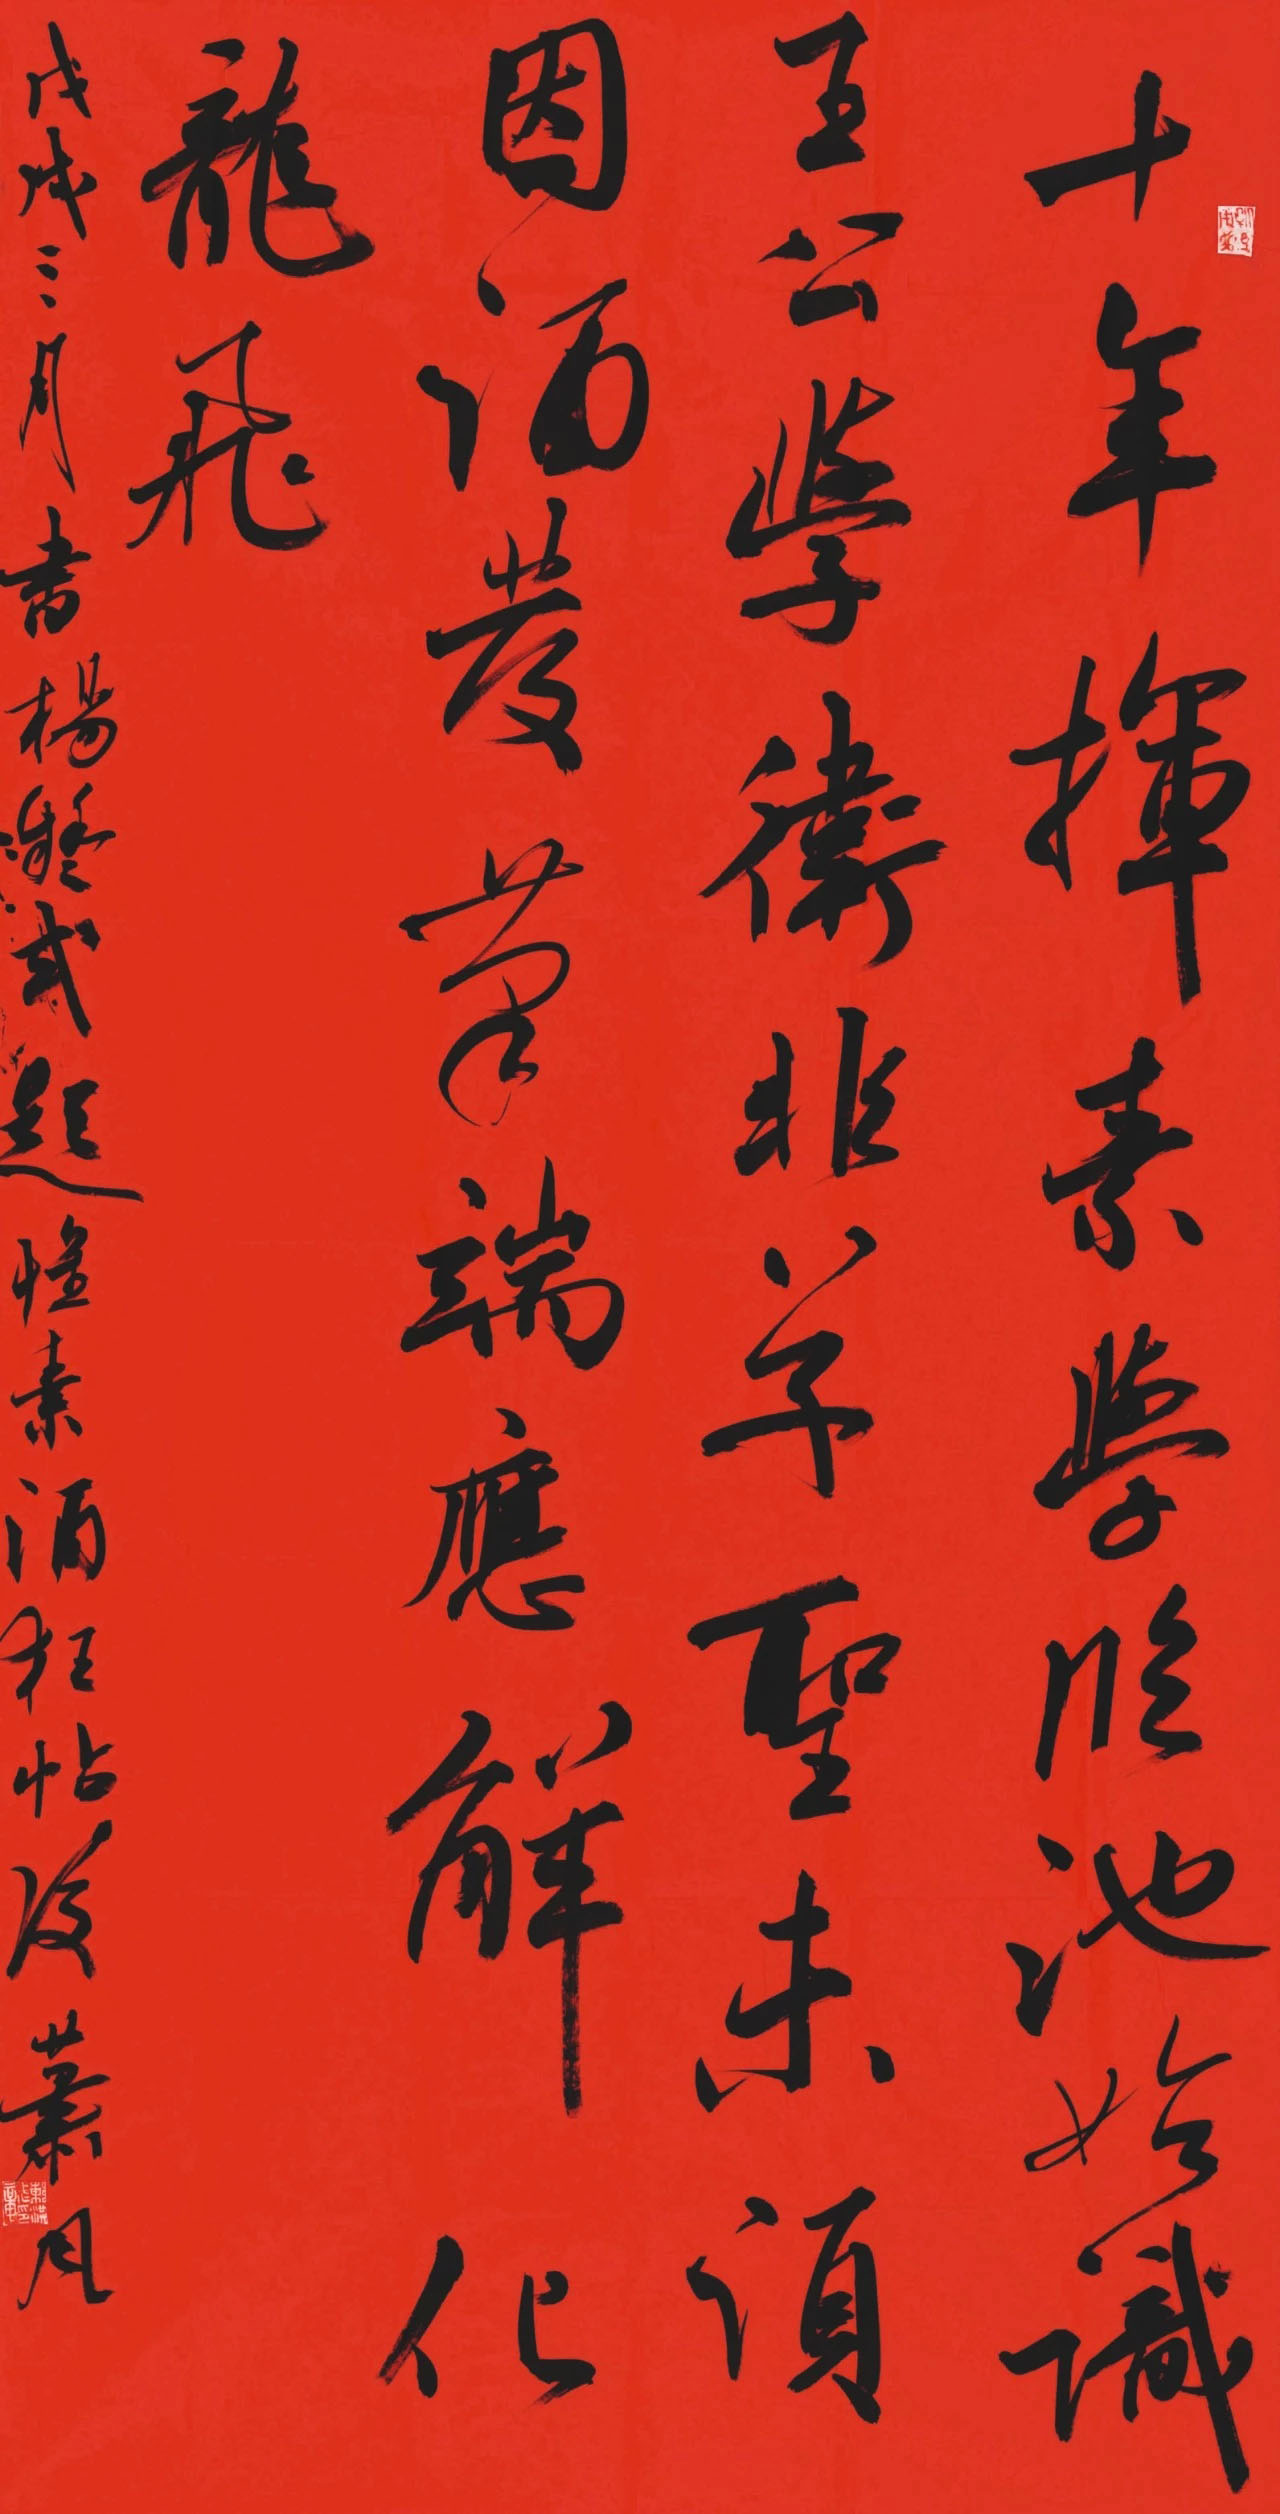 十年揮素學臨池始識
王公學衛非草聖未須
因酒發筆端應解化
龍飛
戊戌三月書楊凝式題懷素酒狂帖後 蕭風